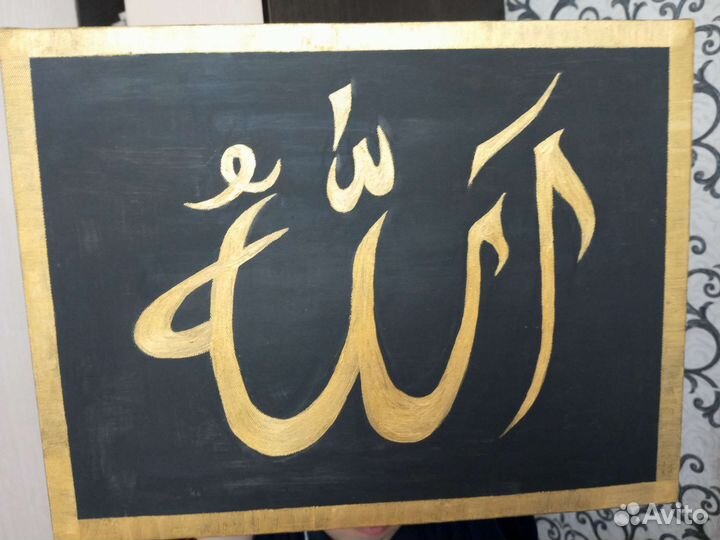 اَللّٰهُ
Avito